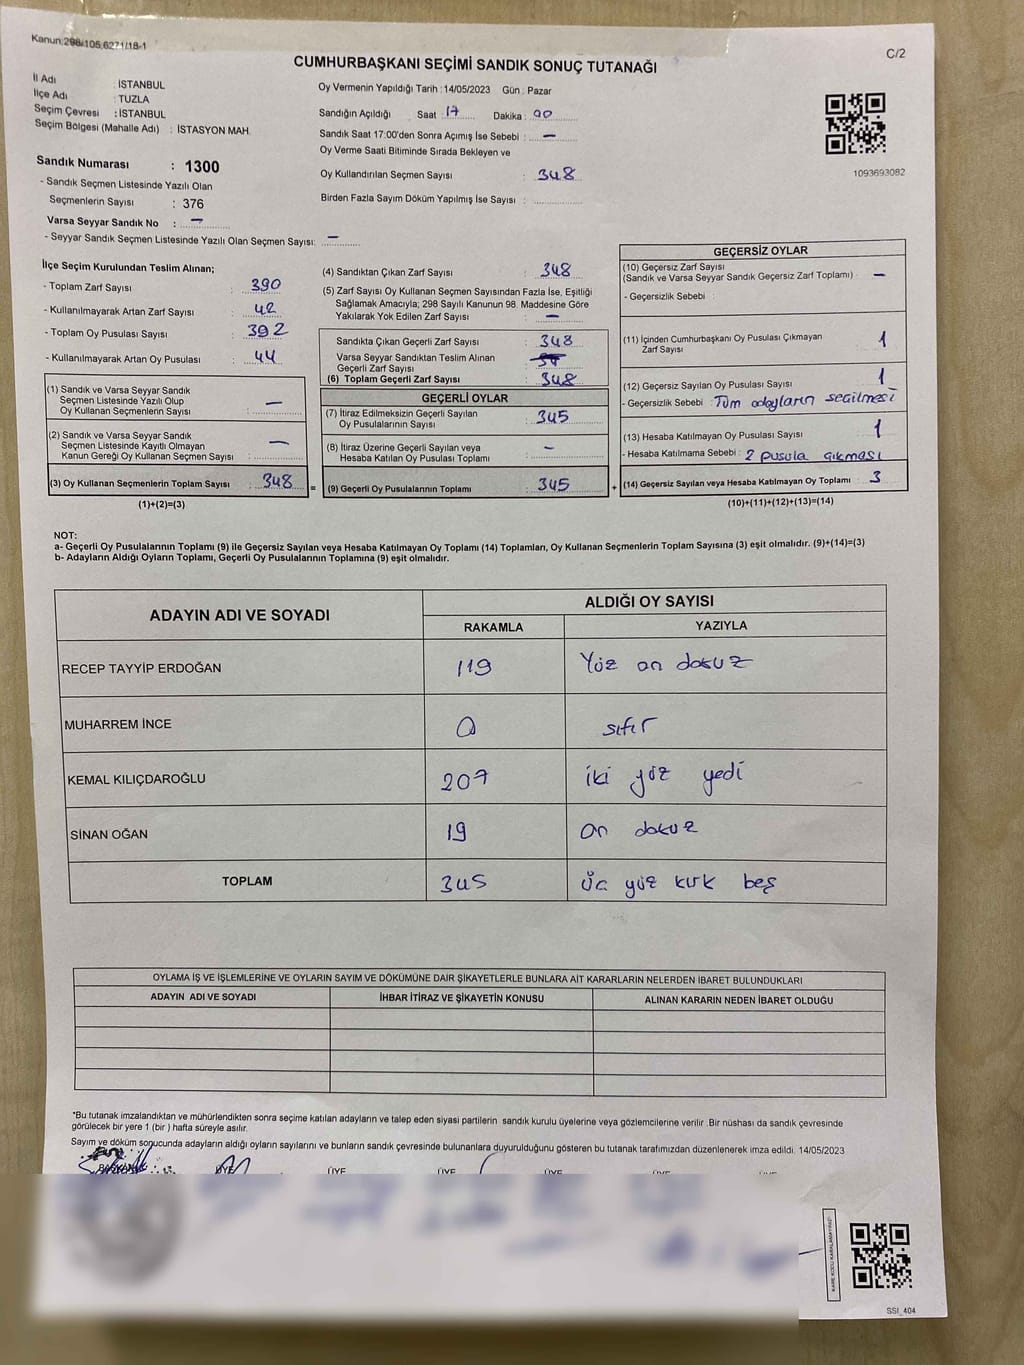 Kanun:298/105,6271/18-1
C/2
CUMHURBAŞKANI SEÇİMİ SANDIK SONUÇ TUTANAĞI
İl Adı : İSTANBUL
İlçe Adı : TUZLA
Seçim Çevresi : İSTANBUL
Seçim Bölgesi (Mahalle Adı) : İSTASYON MAH.
Oy Vermenin Yapıldığı Tarih : 14/05/2023 Gün : Pazar
Sandığın Açıldığı Saat : 17 Dakika : 00
Sandık Saat 17:00'den Sonra Açımış İse Sebebi : —
Oy Verme Saati Bitiminde Sırada Bekleyen ve
Oy Kullandırılan Seçmen Sayısı : 348
Birden Fazla Sayım Döküm Yapılmış İse Sayısı :
1093693082
Sandık Numarası : 1300
- Sandık Seçmen Listesinde Yazılı Olan
Seçmenlerin Sayısı : 376
Varsa Seyyar Sandık No : —
- Seyyar Sandık Seçmen Listesinde Yazılı Olan Seçmen Sayısı: —
İlçe Seçim Kurulundan Teslim Alınan;
- Toplam Zarf Sayısı : 390
- Kullanılmayarak Artan Zarf Sayısı : 42
- Toplam Oy Pusulası Sayısı : 392
- Kullanılmayarak Artan Oy Pusulası : 44
(1) Sandık ve Varsa Seyyar Sandık
Seçmen Listesinde Yazılı Olup
Oy Kullanan Seçmenlerin Sayısı : —
(2) Sandık ve Varsa Seyyar Sandık
Seçmen Listesinde Kayıtlı Olmayan
Kanun Gereği Oy Kullanan Seçmen Sayısı : —
(3) Oy Kullanan Seçmenlerin Toplam Sayısı : 348 =
(1)+(2)=(3)
(4) Sandıktan Çıkan Zarf Sayısı : 348
(5) Zarf Sayısı Oy Kullanan Seçmen Sayısından Fazla İse, Eşitliği
Sağlamak Amacıyla; 298 Sayılı Kanunun 98. Maddesine Göre
Yakılarak Yok Edilen Zarf Sayısı : —
Sandıkta Çıkan Geçerli Zarf Sayısı : 348
Varsa Seyyar Sandıktan Teslim Alınan
Geçerli Zarf Sayısı :
(6) Toplam Geçerli Zarf Sayısı : 348
GEÇERLİ OYLAR
(7) İtiraz Edilmeksizin Geçerli Sayılan
Oy Pusulalarının Sayısı : 345
(8) İtiraz Üzerine Geçerli Sayılan veya
Hesaba Katılan Oy Pusulası Toplamı : —
(9) Geçerli Oy Pusulalarının Toplamı : 345 +
GEÇERSİZ OYLAR
(10) Geçersiz Zarf Sayısı
(Sandık ve Varsa Seyyar Sandık Geçersiz Zarf Toplamı) : —
- Geçersizlik Sebebi :
(11) İçinden Cumhurbaşkanı Oy Pusulası Çıkmayan
Zarf Sayısı : 1
(12) Geçersiz Sayılan Oy Pusulası Sayısı : 1
- Geçersizlik Sebebi : Tüm adayların seçilmesi
(13) Hesaba Katılmayan Oy Pusulası Sayısı : 1
- Hesaba Katılmama Sebebi : 2 pusula çıkması
(14) Geçersiz Sayılan veya Hesaba Katılmayan Oy Toplamı : 3
(10)+(11)+(12)+(13)=(14)
NOT:
a- Geçerli Oy Pusulalarının Toplamı (9) ile Geçersiz Sayılan veya Hesaba Katılmayan Oy Toplamı (14) Toplamları, Oy Kullanan Seçmenlerin Toplam Sayısına (3) eşit olmalıdır. (9)+(14)=(3)
b- Adayların Aldığı Oyların Toplamı, Geçerli Oy Pusulalarının Toplamına (9) eşit olmalıdır.
ADAYIN ADI VE SOYADI
ALDIĞI OY SAYISI
RAKAMLA YAZIYLA
RECEP TAYYİP ERDOĞAN 119 Yüz on dokuz
MUHARREM İNCE 0 sıfır
KEMAL KILIÇDAROĞLU 207 iki yüz yedi
SİNAN OĞAN 19 on dokuz
TOPLAM 345 üç yüz kırk beş
OYLAMA İŞ VE İŞLEMLERİNE VE OYLARIN SAYIM VE DÖKÜMÜNE DAİR ŞİKAYETLERLE BUNLARA AİT KARARLARIN NELERDEN İBARET BULUNDUKLARI
ADAYIN ADI VE SOYADI İHBAR İTİRAZ VE ŞİKAYETİN KONUSU ALINAN KARARIN NEDEN İBARET OLDUĞU
*Bu tutanak imzalandıktan ve mühürlendikten sonra seçime katılan adayların ve talep eden siyasi partilerin sandık kurulu üyelerine veya gözlemcilerine verilir .Bir nüshası da sandık çevresinde
görülecek bir yere 1 (bir ) hafta süreyle asılır.
Sayım ve döküm sonucunda adayların aldığı oyların sayılarını ve bunların sandık çevresinde bulunanlara duyurulduğunu gösteren bu tutanak tarafımızdan düzenlenerek imza edildi. 14/05/2023
BAŞKAN ÜYE ÜYE ÜYE ÜYE ÜYE ÜYE
SSI_404